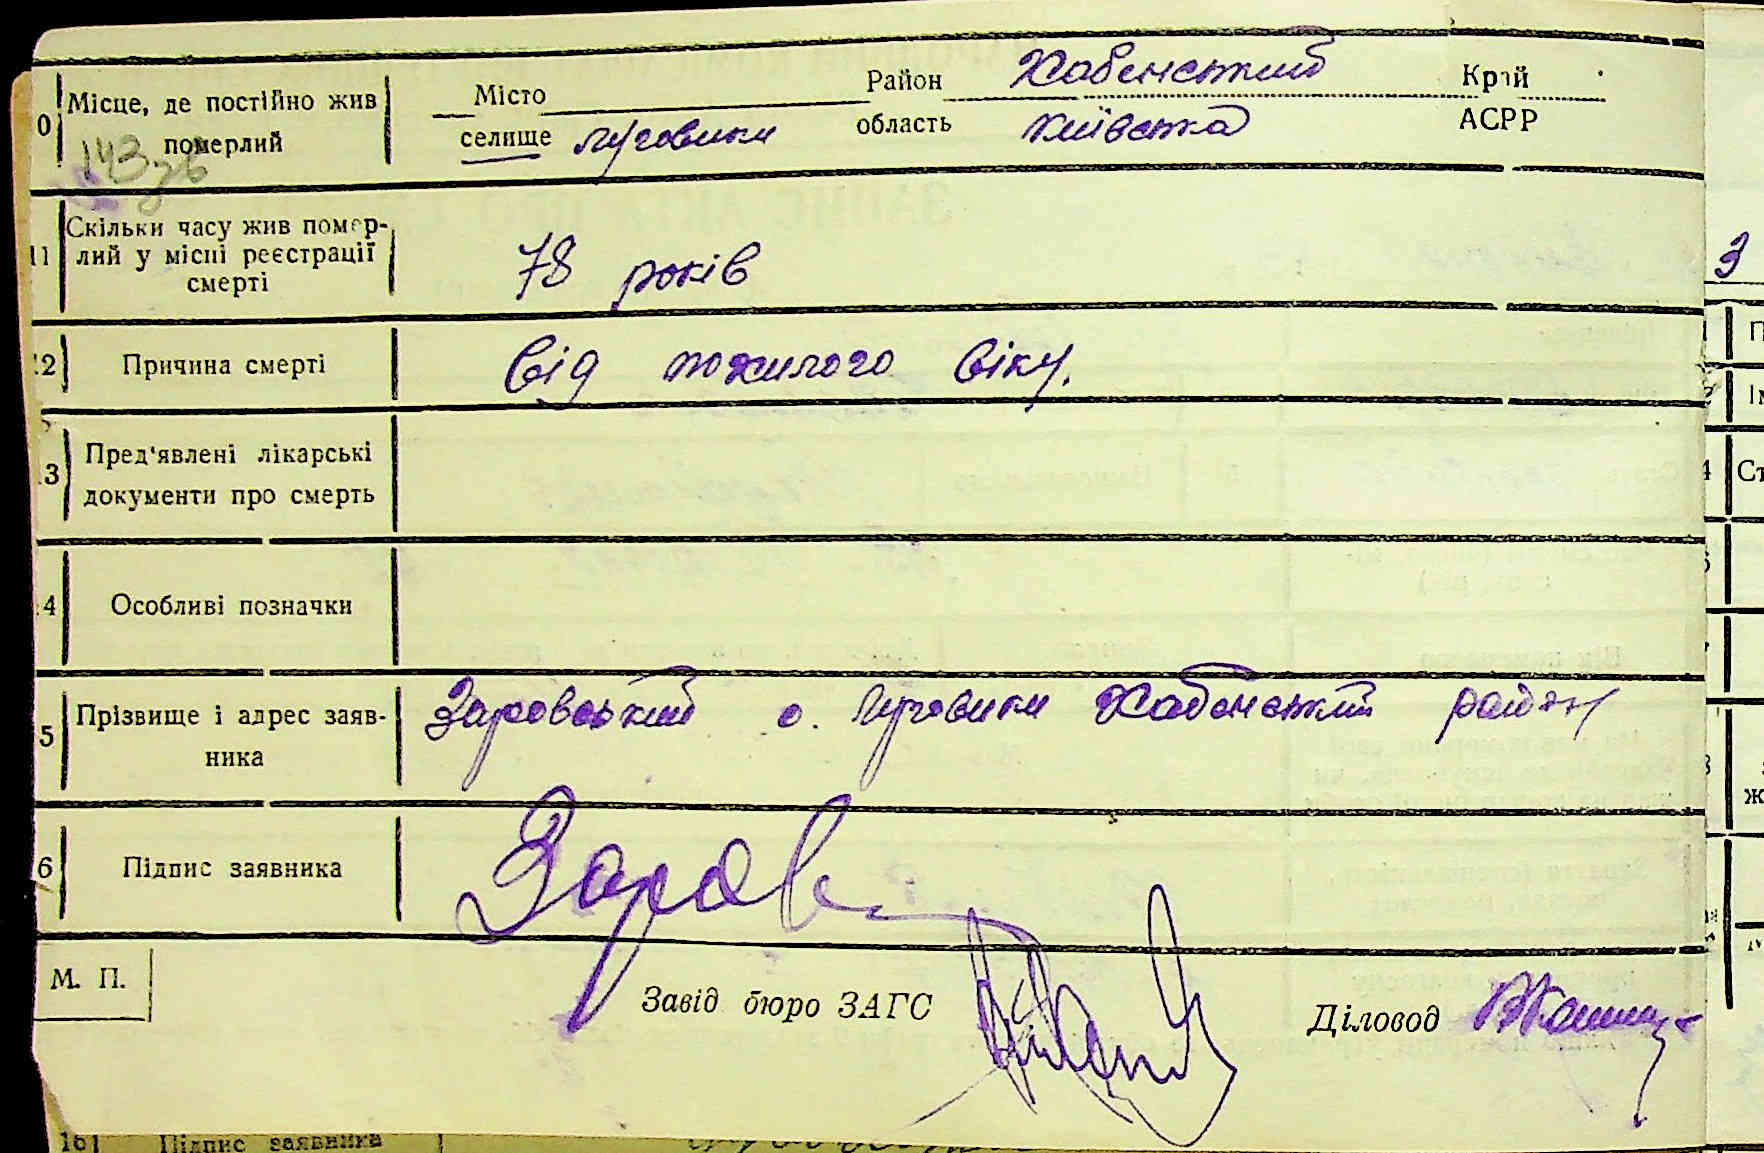 10 Місце, де постійно жив померлий
Місто
селище Луговики
Район Хабенський
область Київська
Край
АСРР
143 зв
11 Скільки часу жив помер-
лий у місці реєстрації
смерті
78 років
12 Причина смерті
від пожилого віку.
13 Пред'явлені лікарські
документи про смерть
14 Особливі позначки
15 Прізвище і адрес заяв-
ника
Заровський с. Луговики Хабенський район
16 Підпис заявника
Заров
М. П.
Завід бюро ЗАГС
Діловод
16 Підпис заявника
З